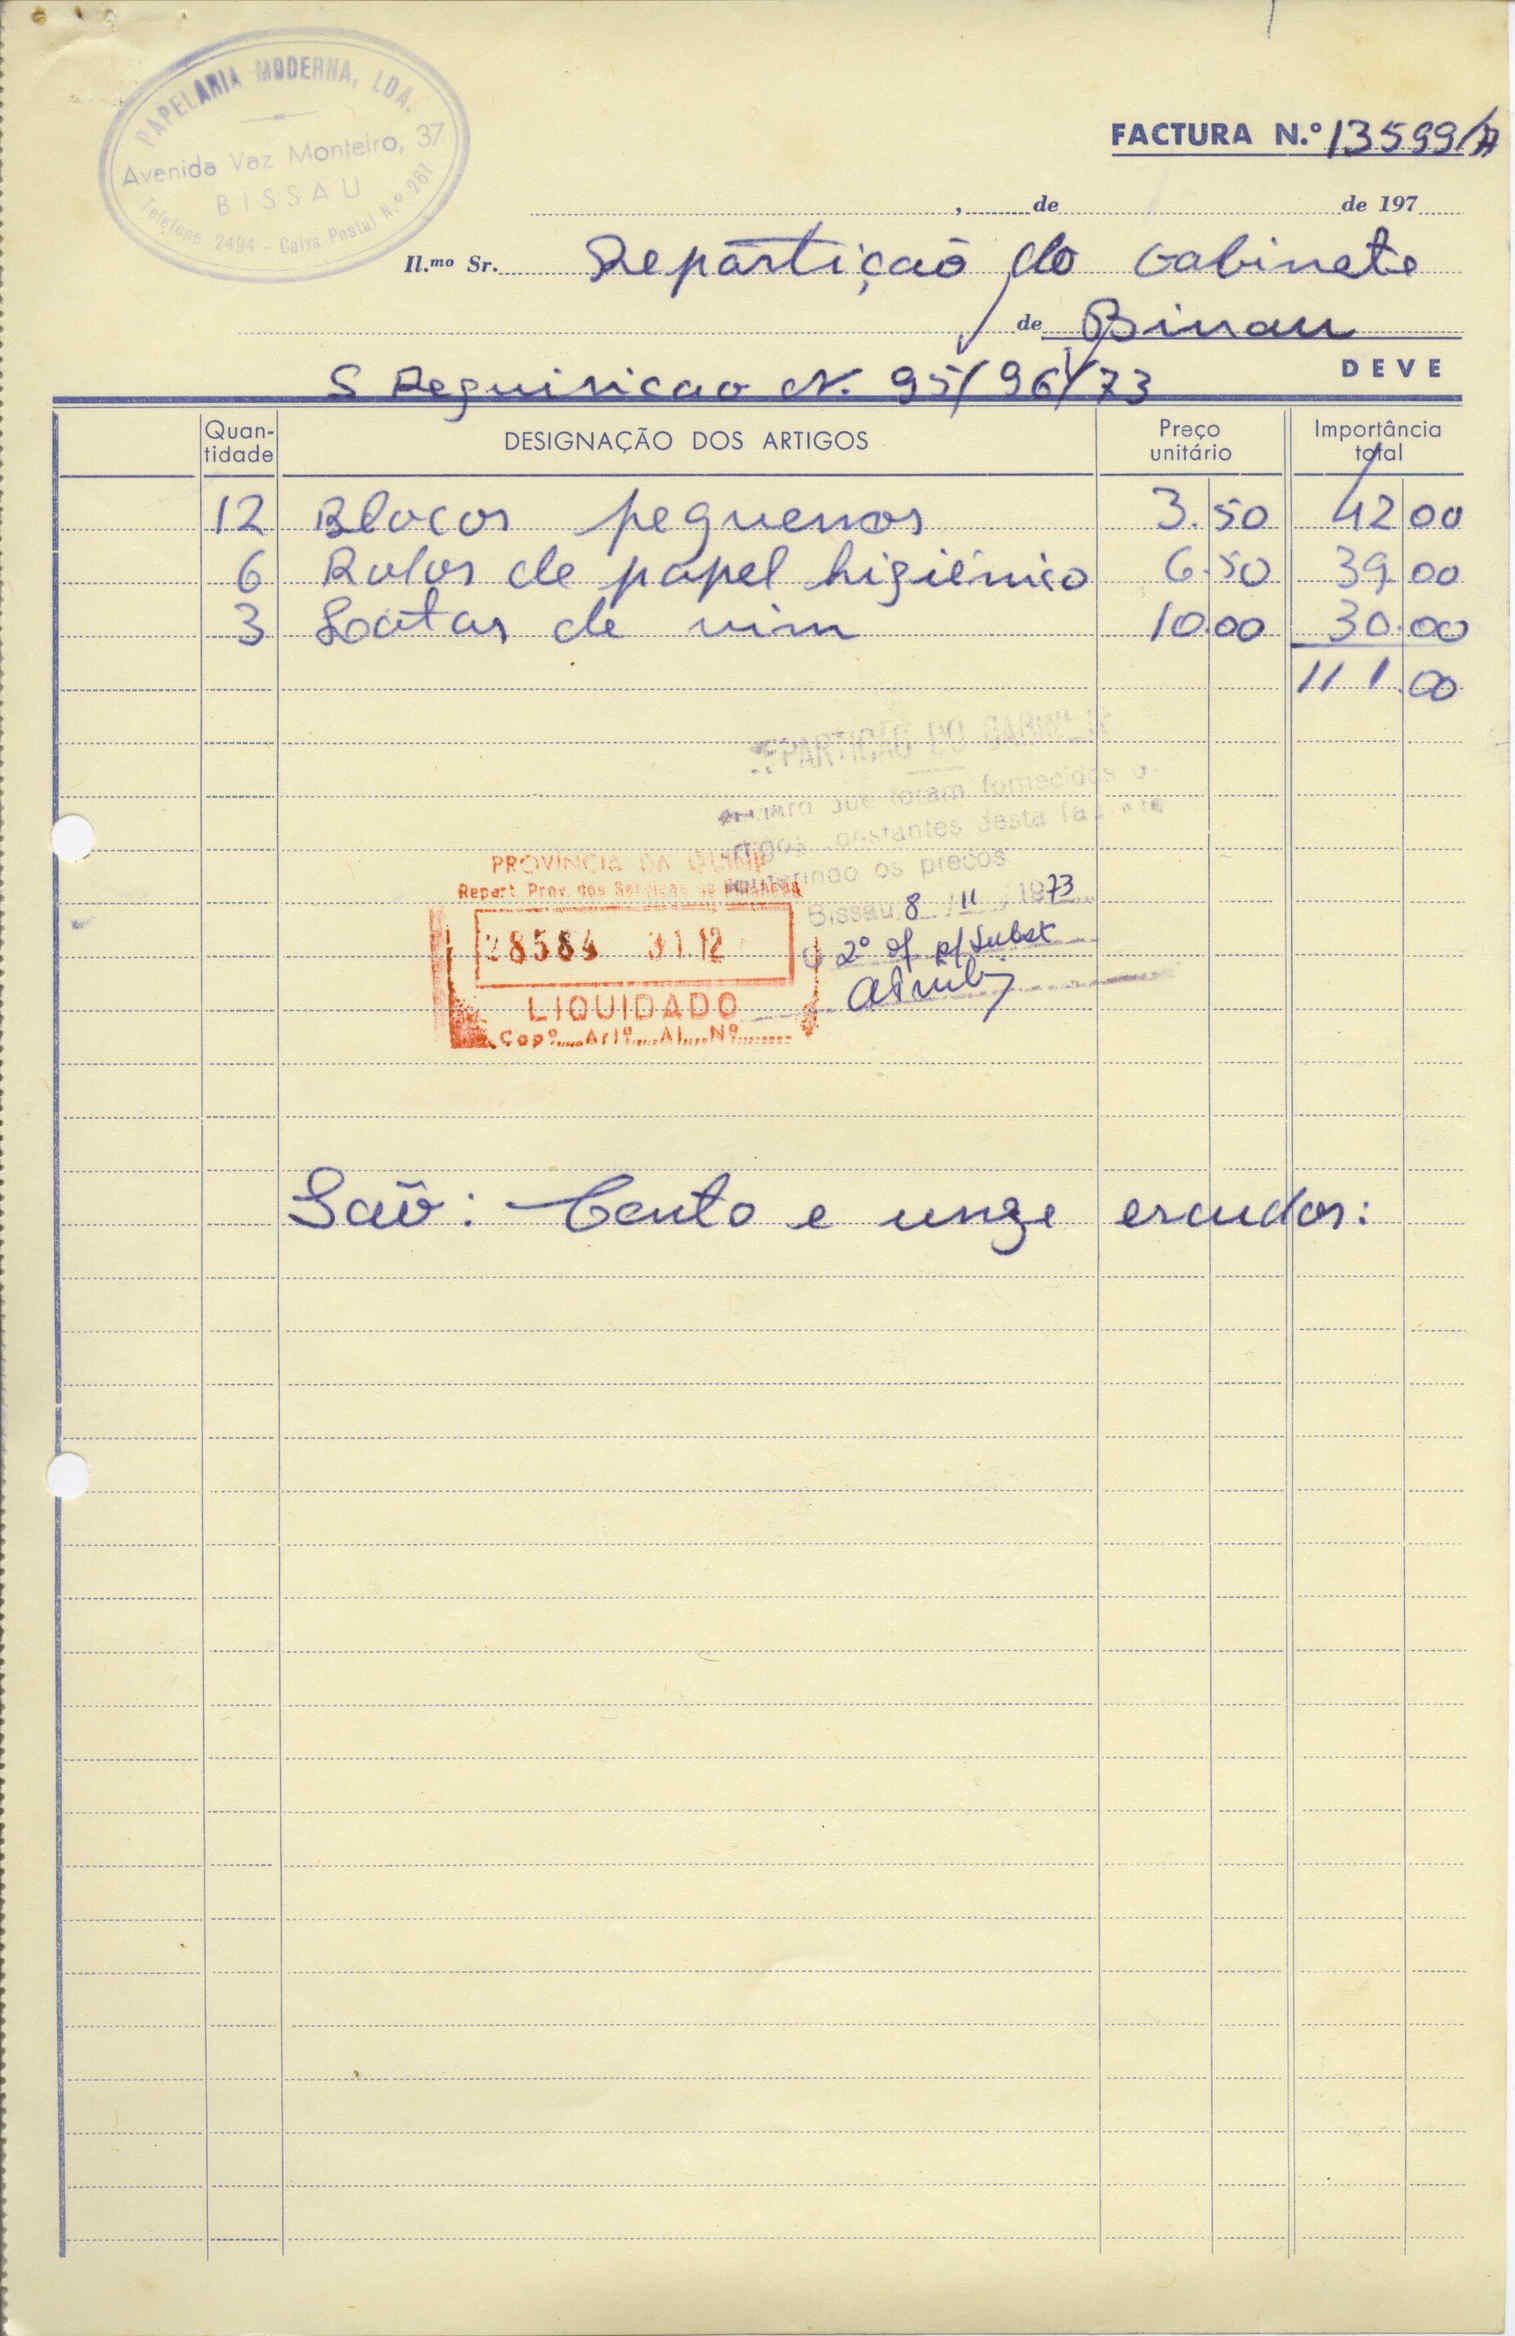 PAPELARIA MODERNA, LDA.
Avenida Vaz Monteiro, 37
BISSAU
Telefone 2494 - Caixa Postal N.º 261
FACTURA N.º 13599/A
, de de 197
Il.mo Sr. Repartição do Gabinete
de Bissau
S Requisicao N. 95/96/73 DEVE
Quantidade DESIGNAÇÃO DOS ARTIGOS Preço unitário Importância total
12 Blocos pequenos 3.50 42 00
6 Rolos de papel higiénico 6.50 39 00
3 Latas de vim 10.00 30.00
111.00
REPARTIÇÃO DO GABINETE
que foram fornecidos o
artigos constantes desta factura
os preços
Bissau 8 / 11 / 1973
O 2º of p/ Subst
PROVÍNCIA DA GUINÉ
Repart. Prov. dos Serviços de
28584 31.12
LIQUIDADO
Capº.....Artº.....Al.....Nº........
São: Cento e onze escudos: